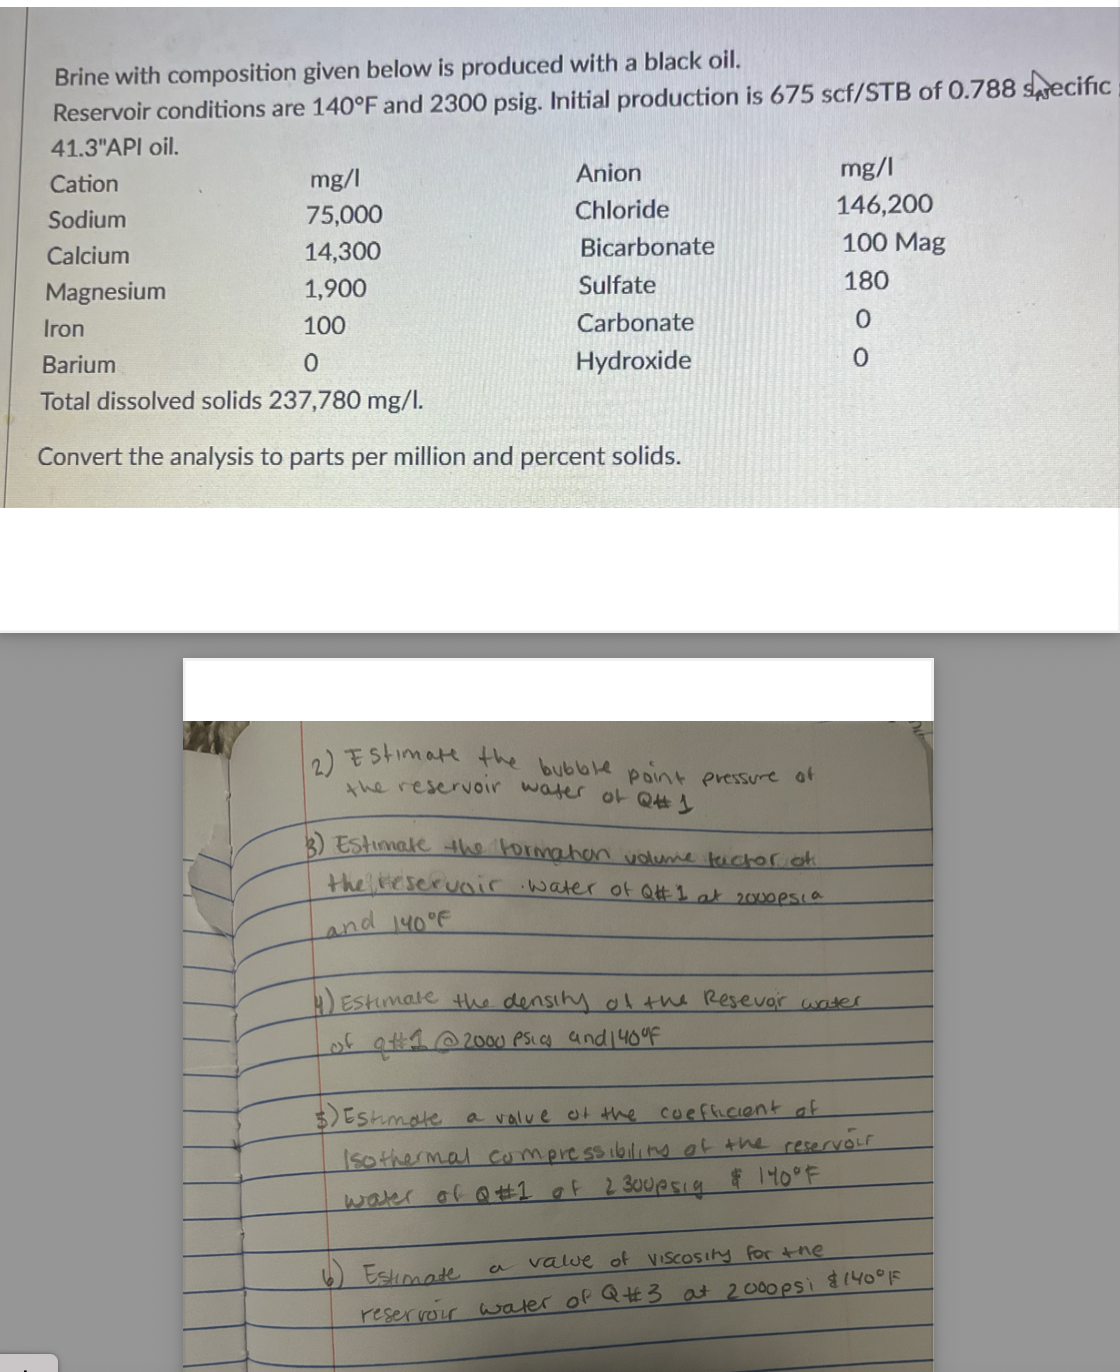 Brine with composition given below is produced with a black oil.
Reservoir conditions are 140°F and 2300 psig. Initial production is 675 scf/STB of 0.788 specific
41.3"API oil.
Cation mg/l Anion mg/l
Sodium 75,000 Chloride 146,200
Calcium 14,300 Bicarbonate 100 Mag
Magnesium 1,900 Sulfate 180
Iron 100 Carbonate 0
Barium 0 Hydroxide 0
Total dissolved solids 237,780 mg/l.
Convert the analysis to parts per million and percent solids.
2) Estimate the bubble point pressure of
the reservoir water of Q#1
3) Estimate the formation volume factor of
the reservoir water of Q#1 at 2000psia
and 140°F
4) Estimate the density of the Resevoir water
of q#1 @ 2000 psia and 140°F
5) Estimate a value of the coefficient of
Isothermal compressibility of the reservoir
water of Q#1 at 2300psig & 140°F
6) Estimate a value of viscosity for the
reservoir water of Q#3 at 2000psi & 140°F